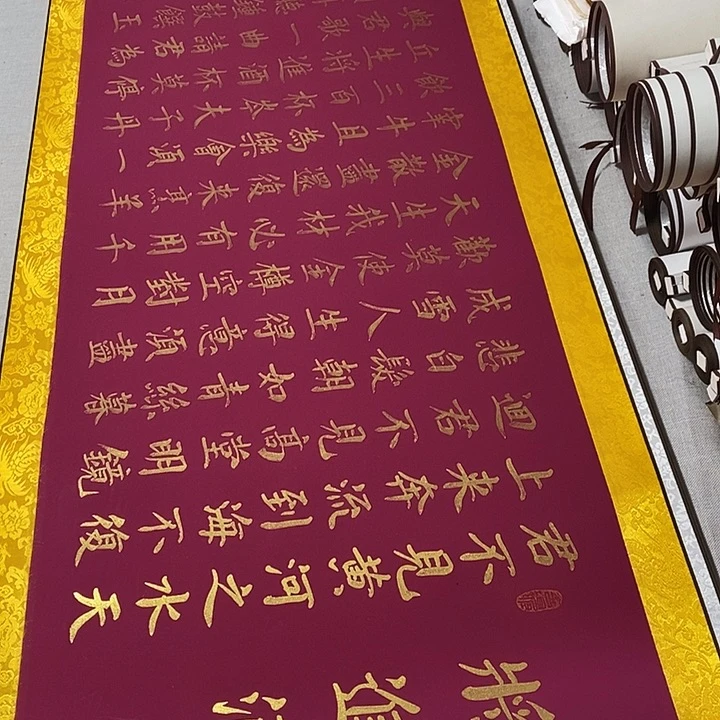 將進酒
君不見黃河之水天
上来奔流到海不復
迴君不見高堂明鏡
悲白髮朝如青絲暮
成雪人生得意須盡
歡莫使金樽空對月
天生我材必有用千
金散盡還復来烹羊
宰牛且為樂會須一
飲三百杯岑夫子丹
丘生將進酒杯莫停
與君歌一曲請君為
鐘鼓饌玉